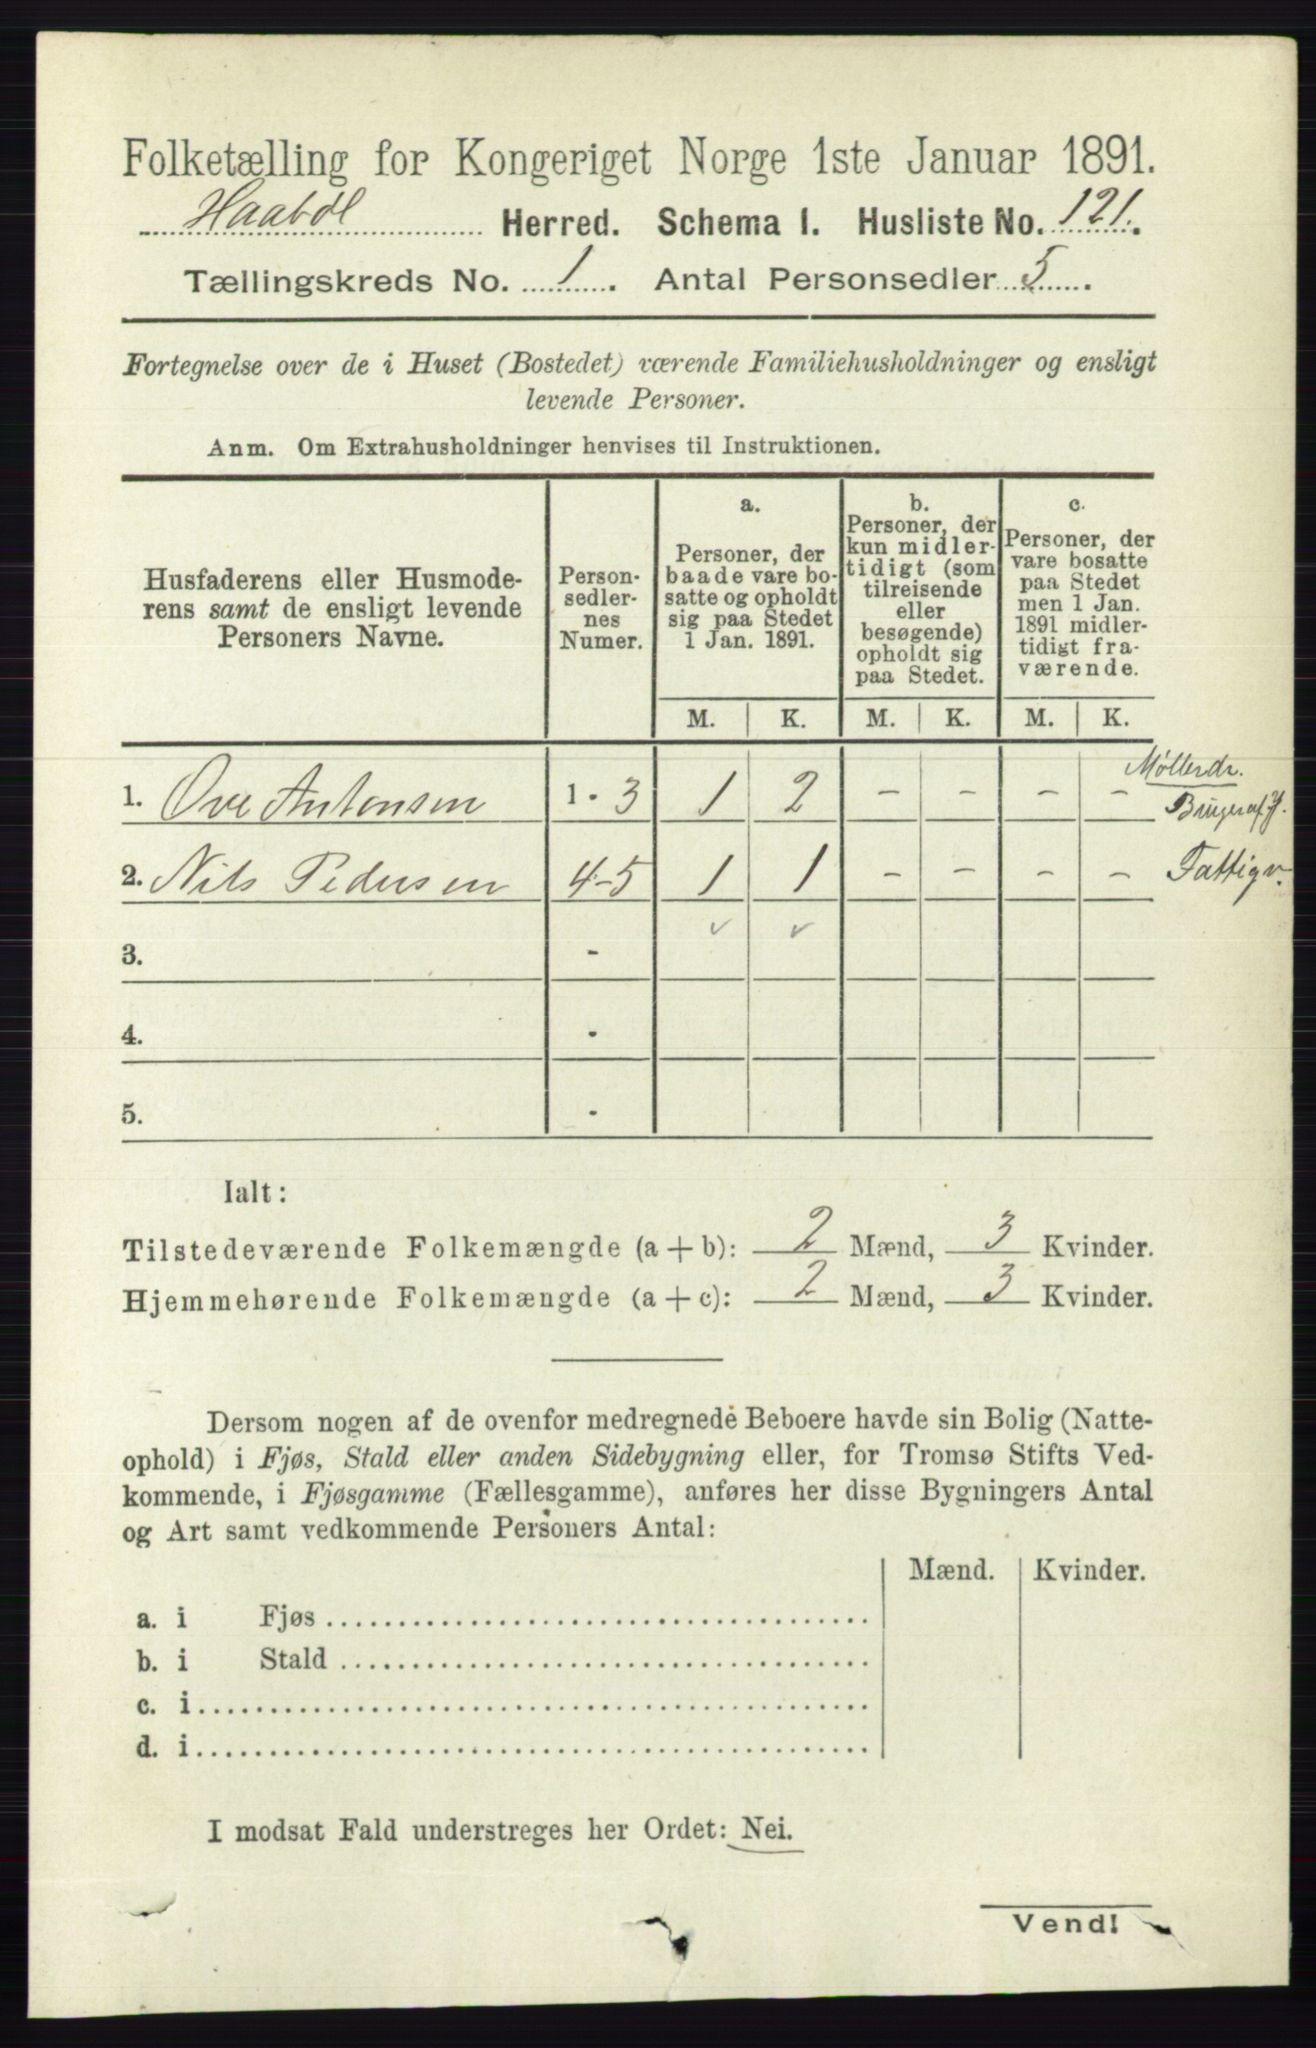 Folketælling for Kongeriget Norge 1ste Januar 1891.
Haabøl Herred. Schema I. Husliste No. 121.
Tællingskreds No. 1. Antal Personsedler 5.
Fortegnelse over de i Huset (Bostedet) værende Familiehusholdninger og ensligt
levende Personer.
Anm. Om Extrahusholdninger henvises til Instruktionen.
Husfaderens eller Husmode-
rens samt de ensligt levende
Personers Navne.
Person-
sedler-
nes
Numer.
a.
Personer, der
baade vare bo-
satte og opholdt
sig paa Stedet
1 Jan. 1891.
b.
Personer, der
kun midler-
tidigt (som
tilreisende
eller
besøgende)
opholdt sig
paa Stedet.
c.
Personer, der
vare bosatte
paa Stedet
men 1 Jan.
1891 midler-
tidigt fra-
værende.
M. K. M. K. M. K.
Møllerdr.
1. Ove Antonsen 1 - 3 1 2 - - - - Bruger af J.
2. Nils Pedersen 4-5 1 1 - - - - Fattigv.
3. -
4. -
5. -
Ialt:
Tilstedeværende Folkemængde (a + b): 2 Mænd, 3 Kvinder.
Hjemmehørende Folkemængde (a + c): 2 Mænd, 3 Kvinder.
Dersom nogen af de ovenfor medregnede Beboere havde sin Bolig (Natte-
ophold) i Fjøs, Stald eller anden Sidebygning eller, for Tromsø Stifts Ved-
kommende, i Fjøsgamme (Fællesgamme), anføres her disse Bygningers Antal
og Art samt vedkommende Personers Antal:
Mænd. Kvinder.
a. i Fjøs
b. i Stald
c. i
d. i
I modsat Fald understreges her Ordet: Nei.
Vend!